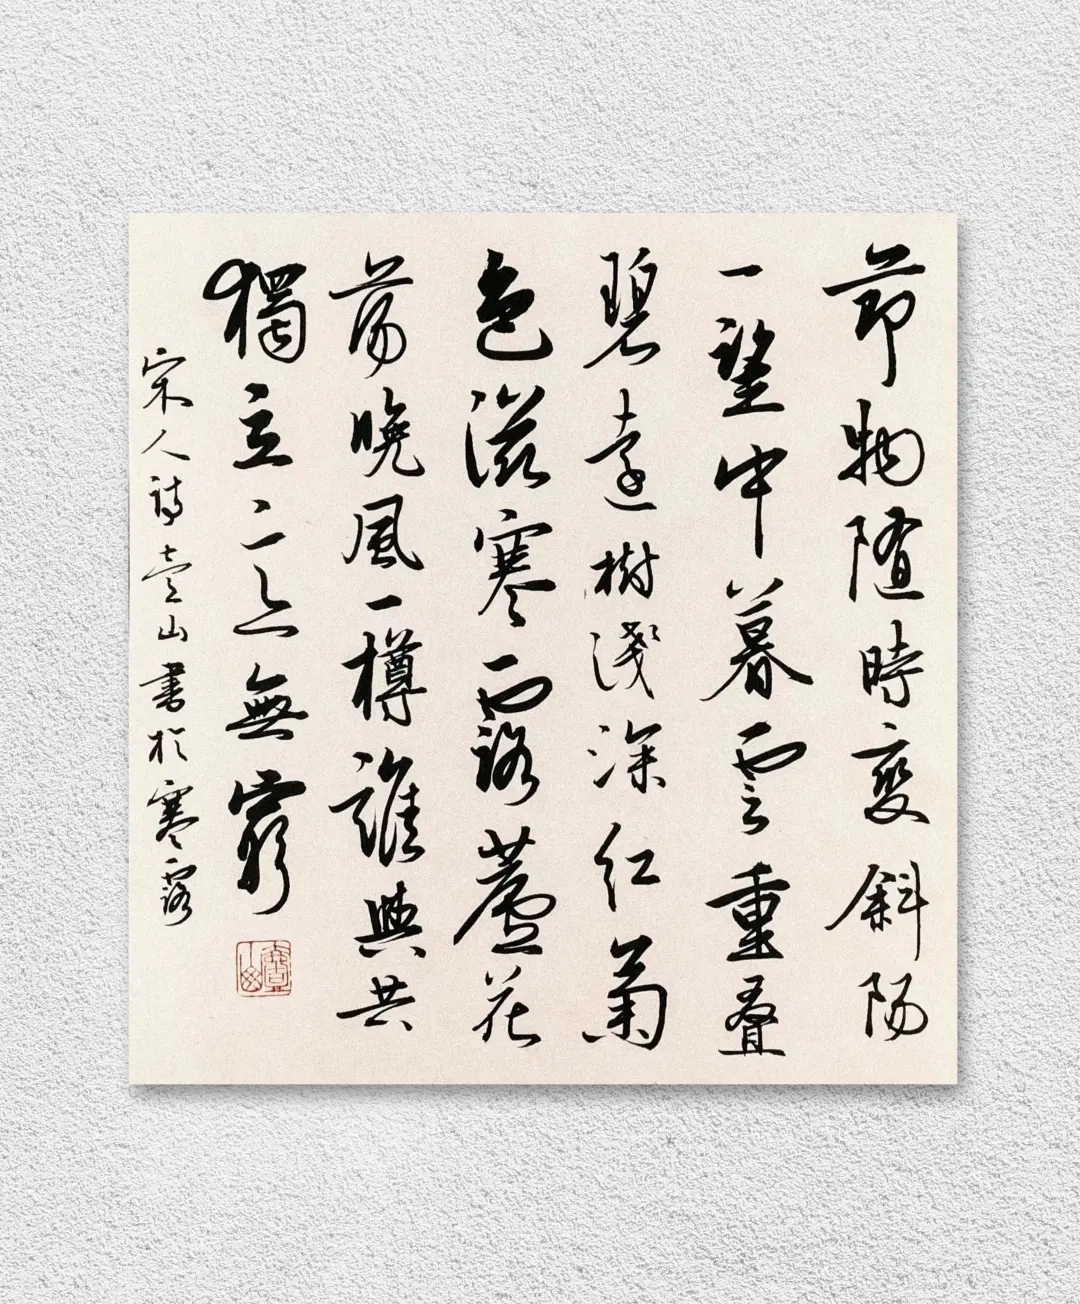 節物隨時變斜陽
一望中暮雲重疊
碧遠樹淺深紅菊
色滋寒露蘆花
蕩晚風一樽誰與共
獨立意無窮
宋人詩壹山書於寒露